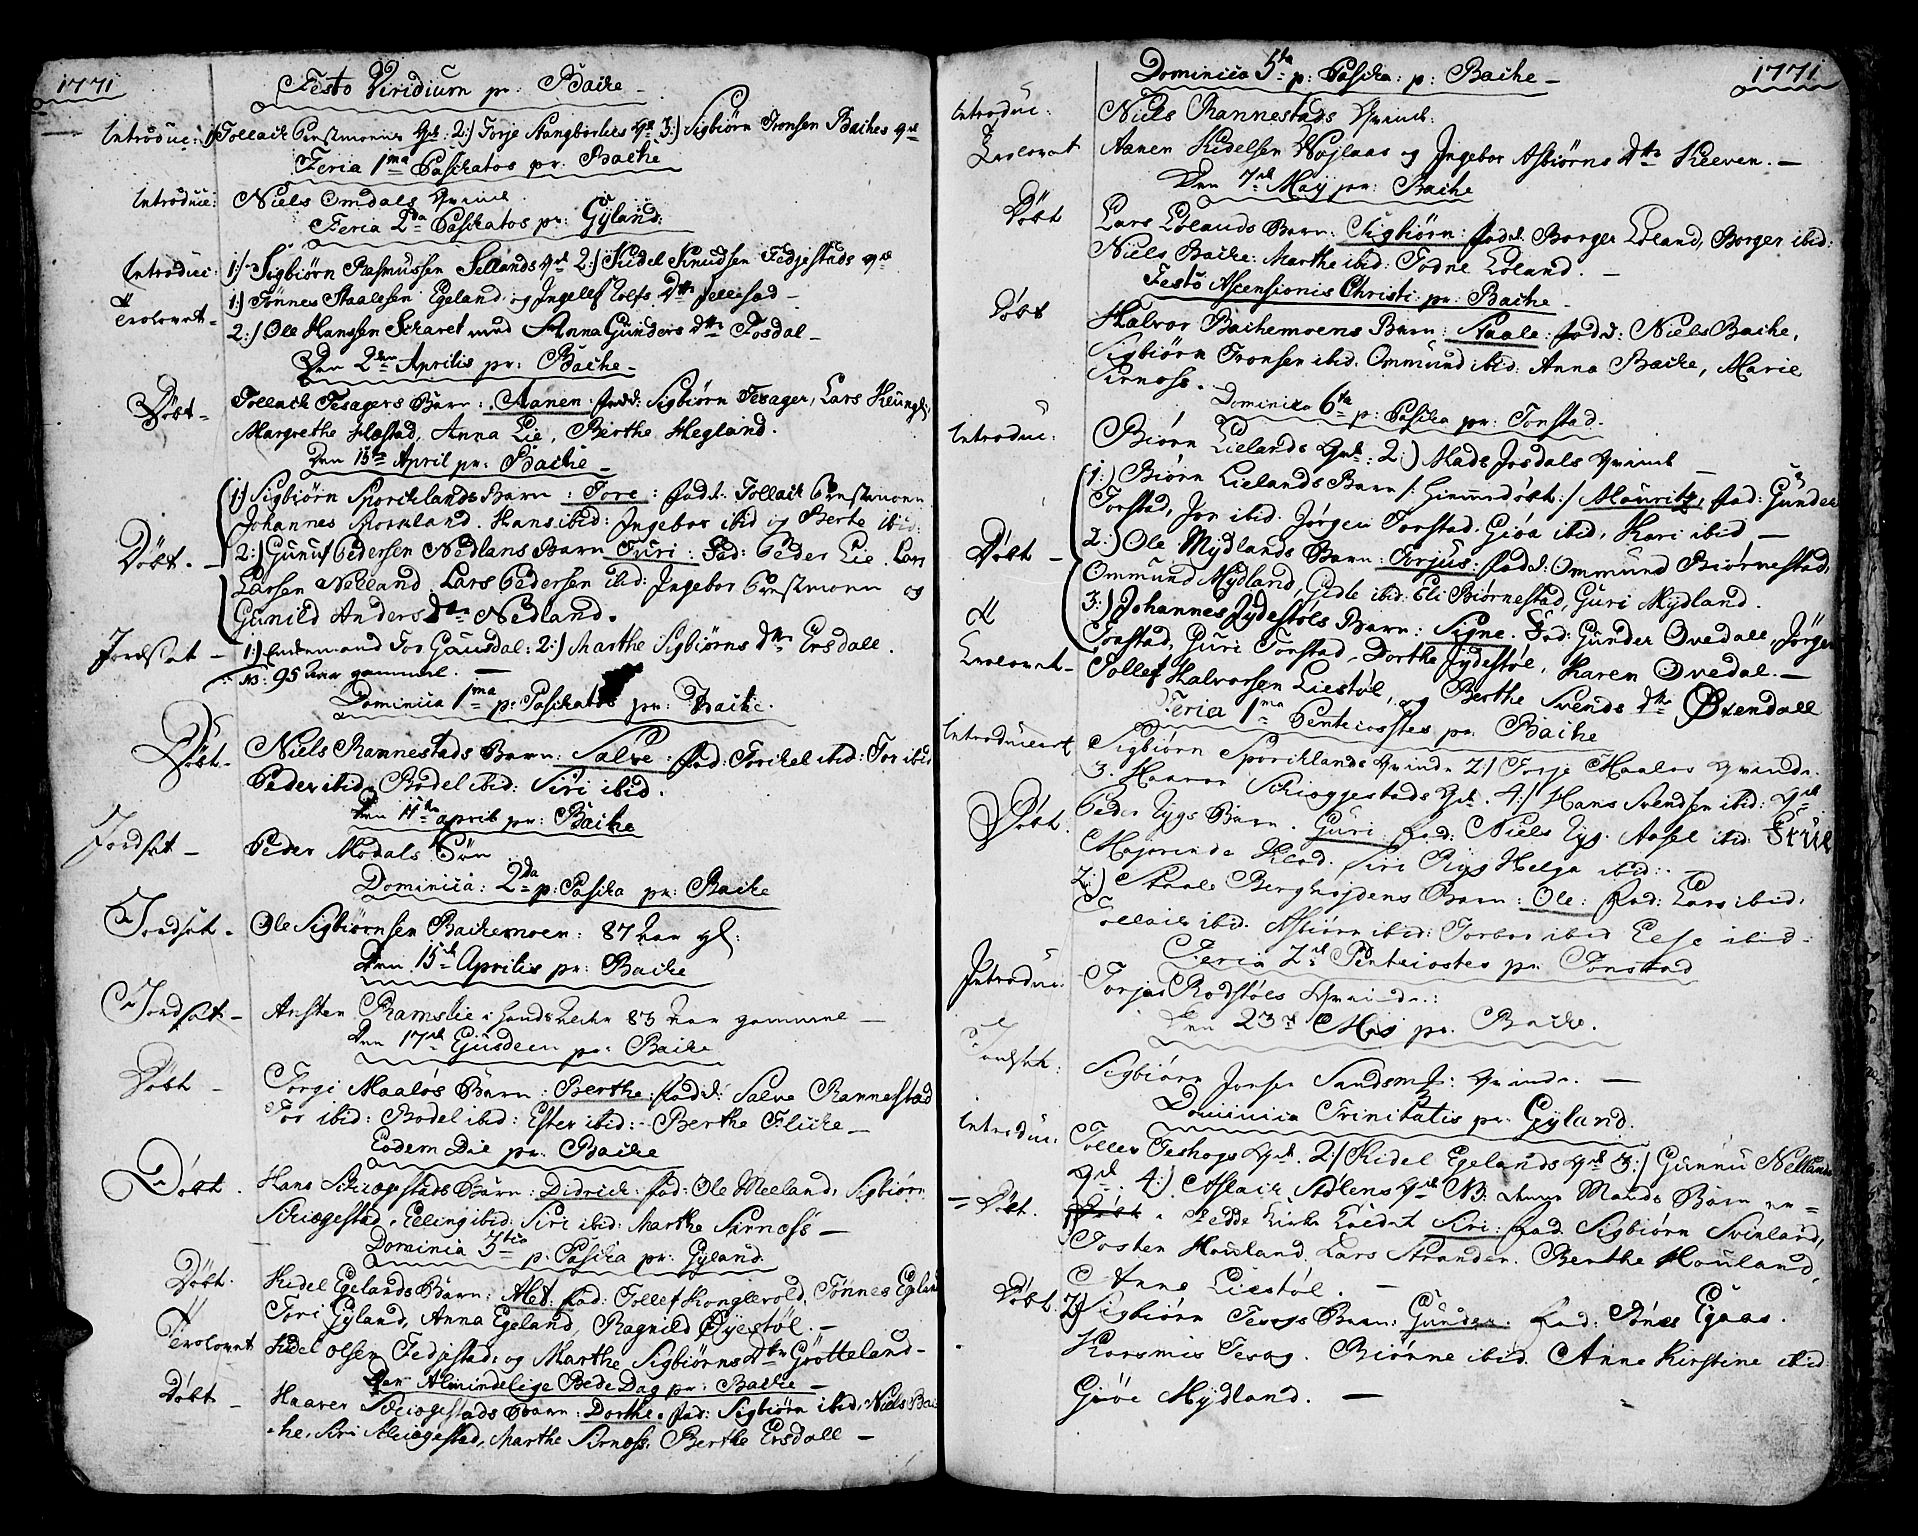 1771
Festo Viridium pr: Backe
Introduc: 1) Tollack Qv: 2:) Torje Stangborlies Qv: 3:) Sigbiörn Tronsen Backes qv:
Feria 1ma Paschatos pr: Backe
Introduc: Niels Omdals Qvinde
Feria 2da Paschatos pr: Gyland
Introduc: 1:) Sigbiörn Rasmussen Sellands Qv: 2:) Kidel Knudsen Fedjestads qv:
& Trolovet 1:) Tönnes Staalesen Egeland og Ingelef Rolfs Dtr
2:) Ole Hanssen Skaret med Anna Gunders dtr Tosdal
Den 2den Aprilis pr: Backe
Döbt Tollack Tesagers Barn: Aanen fadd: Sigbiörn Tesager, Lars
Margrethe Hæstad, Anna Lie, Berthe Hegland.
Den April pr: Backe
1:) Sigbiörn Sporcklands Barn: Tore: fad: Tollack
Johannes Hans ibid: Ingebor ibid og Berte ibid
Döbt. 2:) Gunuf Pedersen Nedlans Barn Turi: Fad: Peder Lie. Lars
Larsen Nedland. Lars Pedersen ibid: Ingebor og
Gunild Anders Dtr Nedland.
Jordsat 1:) Tor Gausdal: 2:) Marthe Sigbiörns dtr Ersdall.
95 Aar gammel.
Dominica 1ma p: Paschatos pr: Backe.
Döbt. Niels Rannestads Barn: Salve: fad: Torckel ibid: Tor ibid
Peder ibid: Bodel ibid: Siri ibid.
Den 11te april pr: Backe
Jordsat Peder Modals Sön
Dominica: 2da p: Pascha pr: Backe
Jordsat. Ole Sigbiörnsen Backemoen: 87 Aar gl:
Den 15de Aprilis pr: Backe
Jordsat. Ansten Ramslie 83 Aar gammel
Den 17de pr: Backe
Döbt Torgi Maalös Barn: Berthe: fadd: Salve Rannestad
Tor ibid: Bodel ibid: Ester ibid: Berthe Flicke
Eodem Die pr: Backe
Döbt. Hans Schiegestads Barn: Didrick: fad: Ole Meeland, Sigbiörn
Schiegestad, Elling ibid: Siri ibid: Marthe Sirnoss
Dominica 3tia p: Pascha pr: Gyland.
Döbt. Kidel Egelands Barn: Alet: fad: Tollef Konglevold, Tönnes Egland
Tori Gyland, Anna Egeland, Ragnild Öyestöl.
Trolovet Kidel Olsen Fedjestad og Marthe Sigbiörns Dtr Grötteland
Den Almindelige Bede Dag pr: Backe
Döbt Haaver Schiegestads Barn: Dorthe. fad: Sigbiörn ibid, Niels Bac
ke. Siri Schiegestad, Marthe Sirnoss. Berthe Ersdall
Dominica 5ta p: Pascha: p: Backe 1771
Introduc: Niels Rannestads Qvinde:
Trolovet Aanen Kidelsen Höjlaas og Ingebor Asbiörns Dtr Kleeven.
Den 7de Maij pr: Backe
Döbt Lars Lolands Barn: Sigbiörn: fadd: Borger Loland, Borger ibid:
Niels Backe: Marthe ibid: Todne Loland.
Festo Ascensionis Christi: pr: Backe
Döbt Halvor Backemoens Barn: Staale: fadd: Niels Backe,
Sigbiörn Tronsen ibid: Ommund ibid: Anna Backe, Marie
Sirnoss.
Dominica 6ta p: Pascha pr: Tonstad.
Introduc: Biörn Lielands Qv: 2:) Mads Josdals Qvinde
1:) Biörn Lielands Barn /: hiemmedöbt:/ Mouritz, fad: Gunder
Tonstad, Jon ibid. Jörgen Tonstad. Giöa ibid, Kari ibid
Döbt 2:) Ole Mydlands Barn: Torjus: fadd: Ommund Biörnestad,
Ommund Mydland, Gidle ibid: Eli Biörnestad, Guri Mydland.
3:) Johannes Jydestöls Barn: Signe. Fad: Gunder Ovedall, Jörgen
Tonstad, Guri Tonstad, Dorthe Jydestöl, Karen Ovedal.
& Trolovet Tollef Halvorsen Liestöl, og Berthe Svends dtr Öxendall
Feria 1ma Pentecostes pr: Backe
Introduceret Sigbiörn Sporcklands Qvinde 2:) Torje Maalös Qvinde.
3. Haaver Schiegestads Qv. 4:) Hans Svendsen ibid: Qv:
Döbt. Peder Rygs Barn. Guri: fad: Niels Ryg. Axsel ibid: Frue
Majorinde Siri Rygs Helga ibid:
2:) Staale Berghöjdens Barn: Ole: fad: Lars ibid:
Tollack ibid. Asbiörn ibid: Torbor ibid Else ibid.
Feria 2de Pentecostes pr: Tonstad
Introduc: Torjus Rodstöls Qvinde:
Den 23de Maj pr: Backe.
Jordsat. Sigbiörn Jonsen Qvinde.
Dominica Trinitatis pr: Gyland.
Introduc: Tollev Teshogs Qv. 2:) Kidel Egelands Qv 3:) Gunnu Nellands
Qv. 4:) Aslack Qv NB: Mands Barn
Döbt. 1) i Fedde Kirke Siri: fad: Sigbiörn Svinland,
Tosten Houland. Lars Stranden. Berthe Houland,
Anne Liestöl.
Döbt. 2:) Sigbiörn Tesags Barn: Gunder. Fad: Tönes Egaas.
Rasmus Tesag. Biörne ibid. Anne Kirstine ibid
Giöe Mydland.